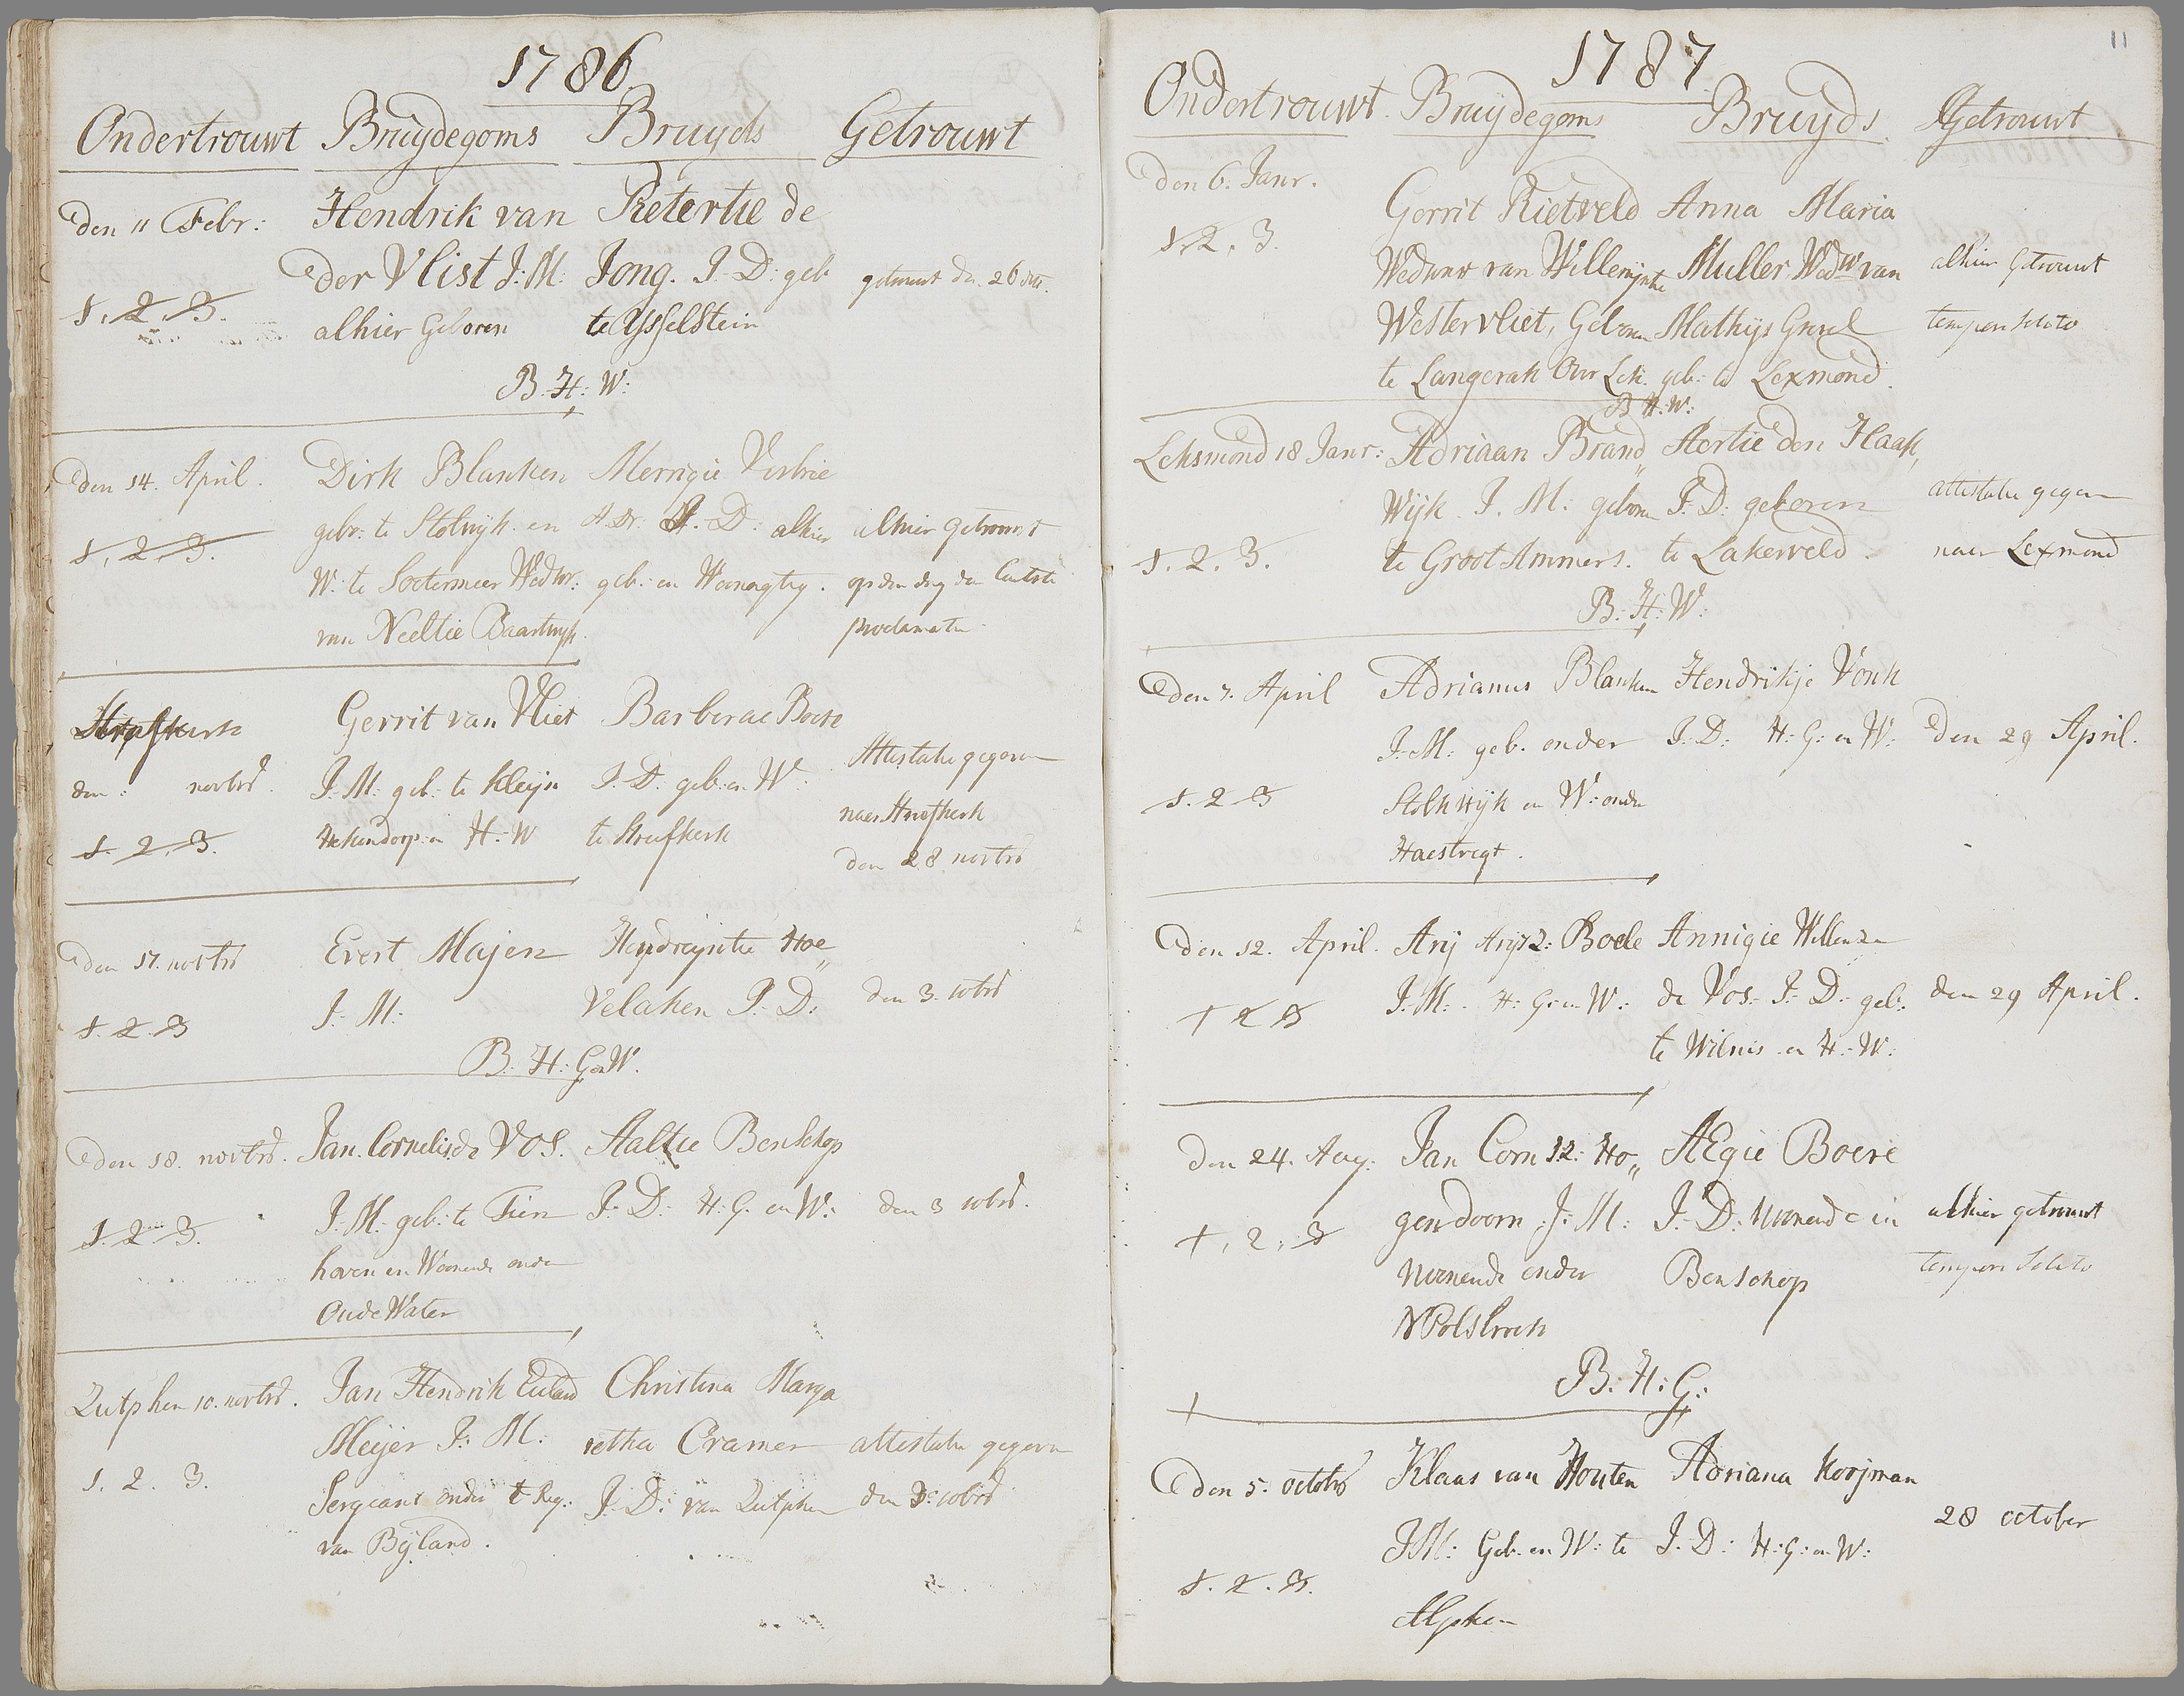 1786
Ondertrouwt Bruydegoms Bruyds Getrouwt
den 11 Febr: Hendrik van Pietertie de
der Vlist J:M: Jong. J:D: geb getrouwt den 26 dito.
1. 2. 3. alhier Geboren te Ysselstein
B. H: W:
den 14. April. Dirk Blanken Merrigie Verbrie
gebr: te Stolwyk en J.D: alhier alhier getrouwt
1. 2. 3. W: te Soetermeer Wedwr: geb: en Woonagtig. op den dag der laatste
van Neeltie Baartwyk. proclamatie
Streefkerk Gerrit van Vliet Barberae Boere
den: novbrs. J:M: geb: te Kleijn J:D: geb: en W: Attestatie gegeven
1. 2. 3. Hekendorp en H:W te Streefkerk naer Streefkerk
den 28 novbrs
den 17. novbrs Evert Majen Hendreyntie Hoe„
1. 2. 3 J: M: velaken J: D: den 3. 10brs
B: H: G en W.
den 18. novbrs. Jan Cornelis de Vos. Aaltie Benschop
1. 2. 3. J: M: geb: te Tien J: D: H: G. en W: den 3 10brs.
hoven en Woonende onder
Oude Water
Zutphen 10. novbrs. Jan Hendrik Meijer Christina Marga
J: M: retha Cramer attestatie gegeven
1. 2. 3. Sergeant onder 't Reg: J: D: van Zutphen den 3: 10brs
van Byland.
11
1787
Ondertrouwt. Bruydegoms Bruyds. Getrouwt
den 6. Janr. Gerrit Rietveld Anna Maria
1. 2. 3. Wedwnr van Willemijntie Muller Wedw van alhier Getrouwt
Westervliet, Geboren Mathijs Graal tempore solito
te Langerak Over Lek. geb: te Lexmond.
B H: W:
Leksmond 18 Janr: Adriaan Brand„ Aertie den Haak,
Wijk J. M: geboren J: D: geboren attestatie gegeven
1. 2. 3. te Groot Ammers. te Lakerveld. naer Lexmond
B: H: W:
den 7. April Adrianus Blanken Hendrikje Vonk
J: M: geb. onder J: D: H: G: en W: den 29 April.
1. 2 3 Stolkwijk en W: onder
Haestregt.
den 12. April. Arij Arijsz: Boele Annigie Willemze
1 2 3 J: M: H: G: en W: de Vos. J: D: geb: den 29 April.
te Wilnis en H: W:
den 24. Aug: Jan Corn sz: Ho„ AEgie Boere
1. 2. 3 gendoorn J: M: J: D: Woonende in alhier getrouwt
Woonende onder Benschop tempore solito
N Polsbroek
B: H: G:
Den 5. octobr Klaas van Houten Adriana Kooijman
J M: Geb. en W: te J: D: H: G: en W: 28 october
1. 2. 3. Alphen